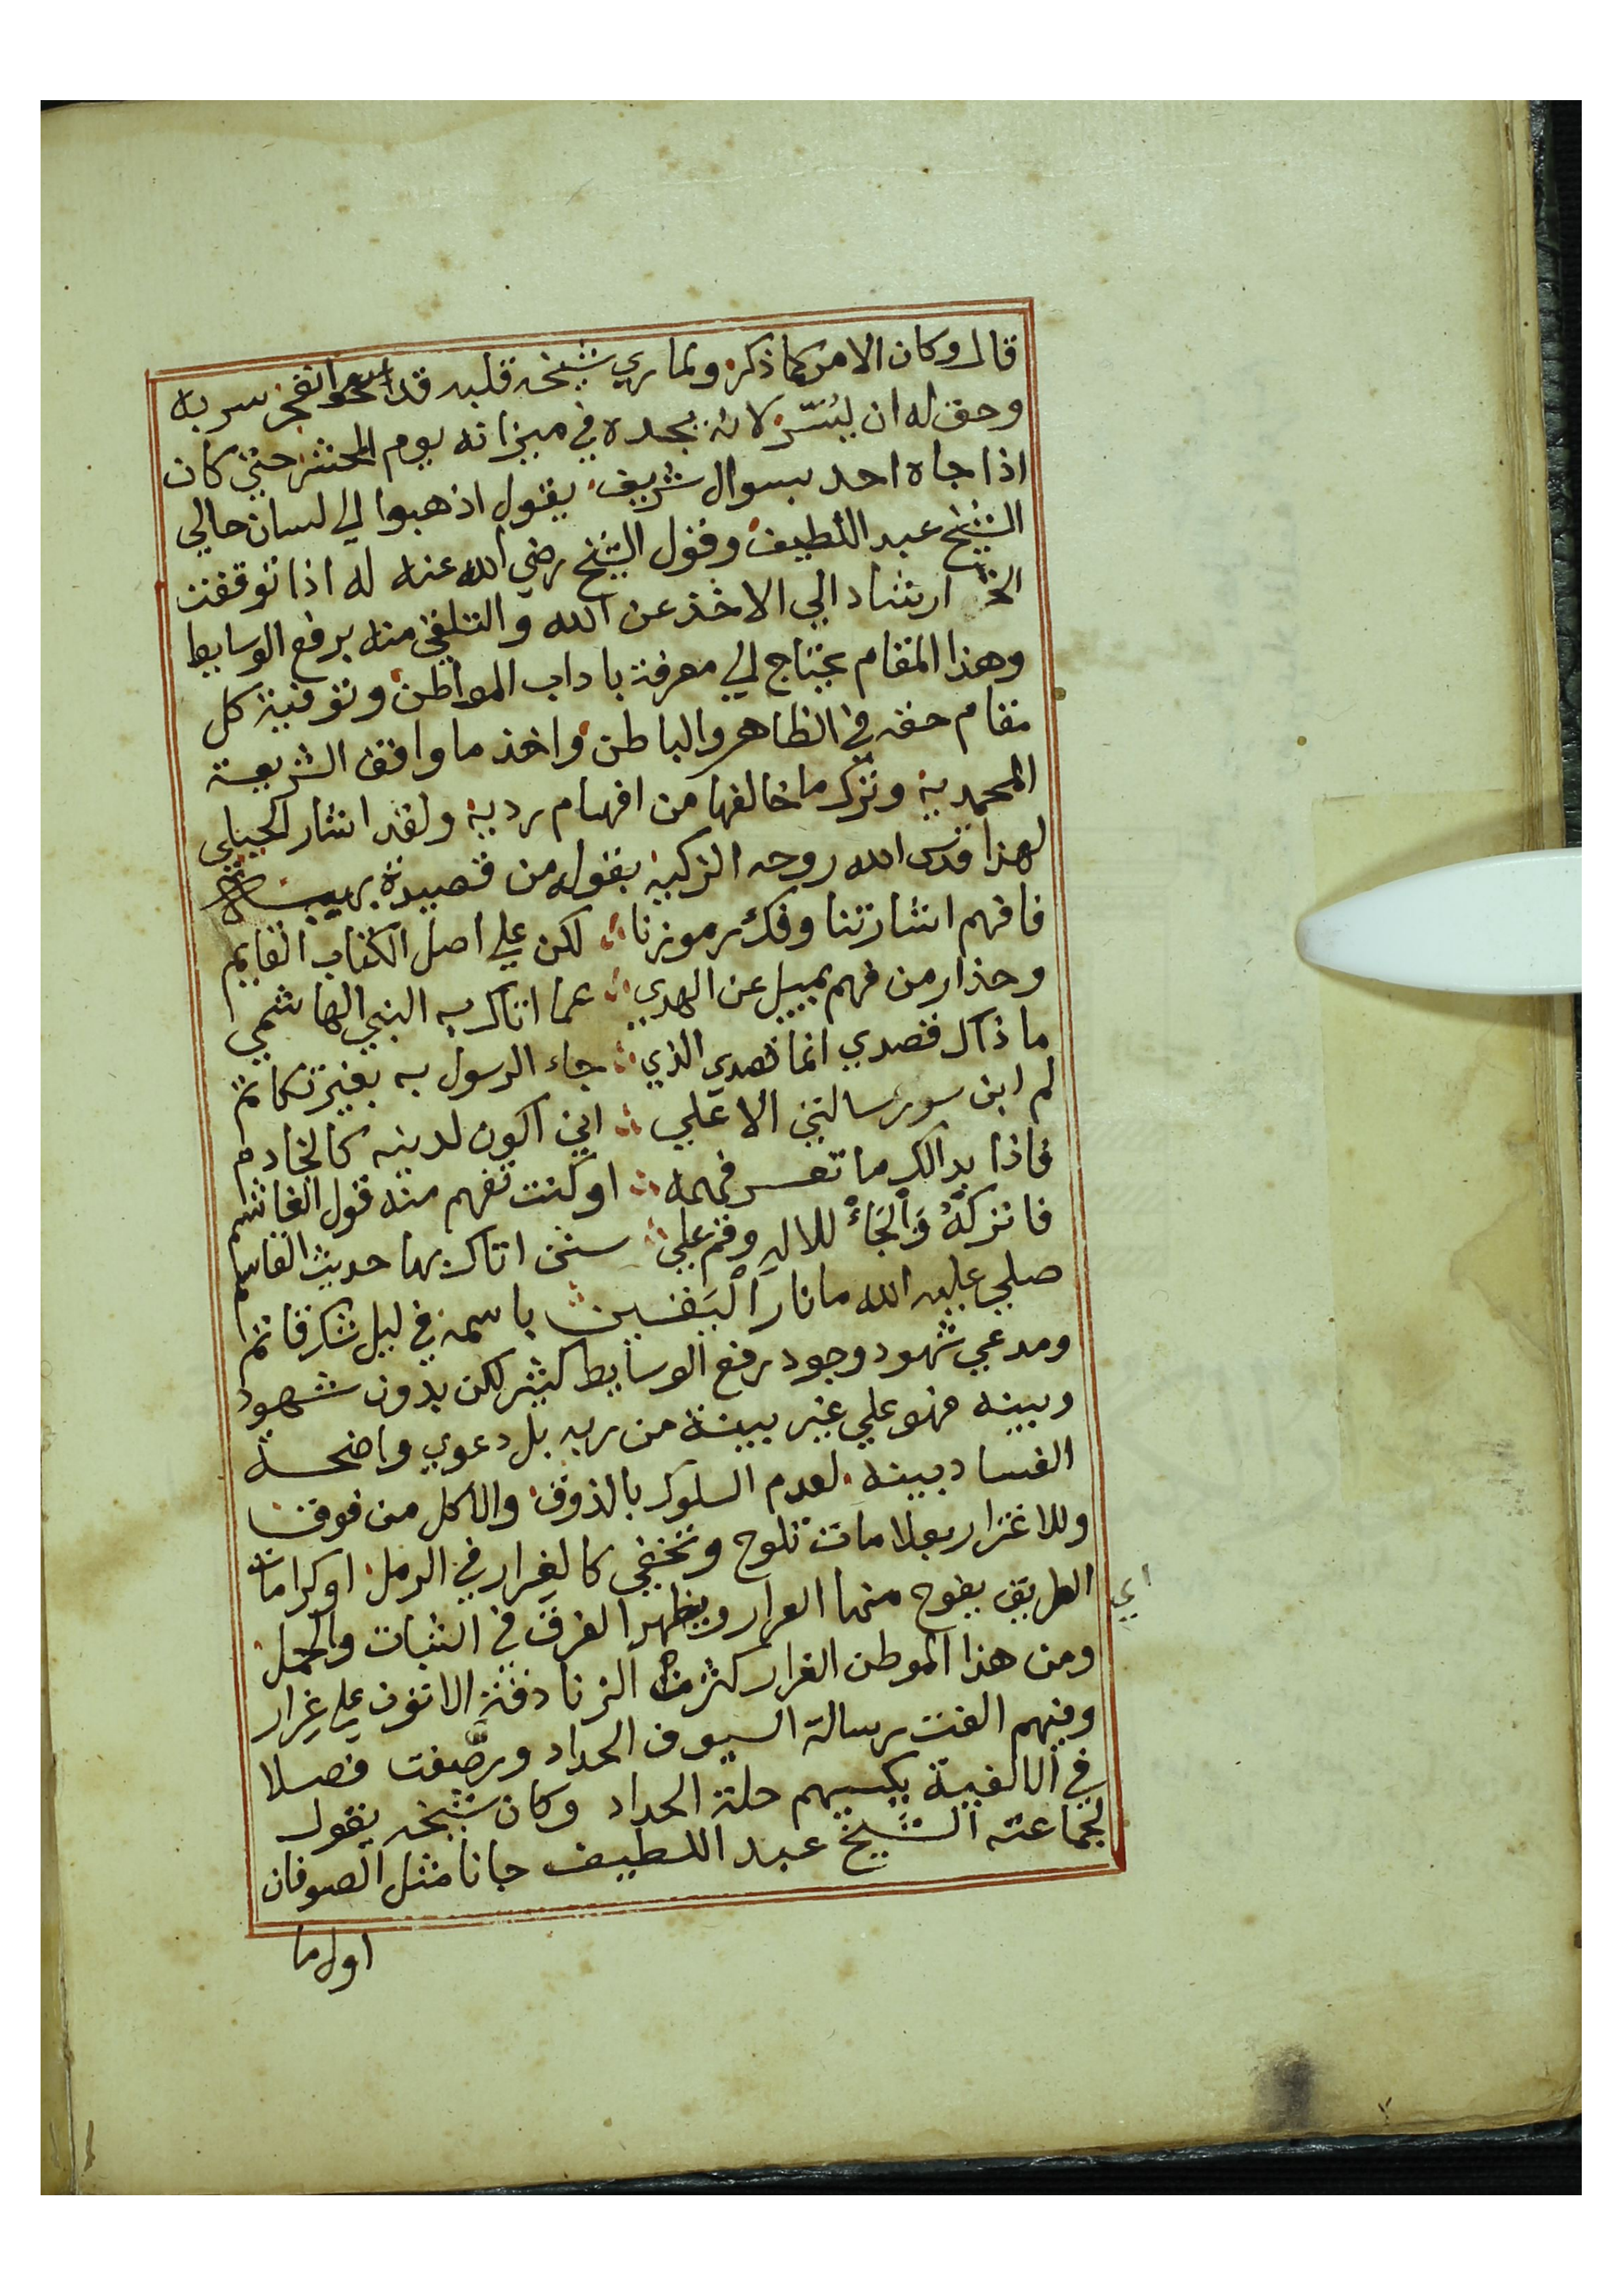 قال وكان الامر كما ذكر ولما راي شيخه قلبه قد انفجر سر به
وحق له ان يُسَّر لانه يجده في ميزانه يوم المحشر حتي كان
اذا جاه احد بسوال شريف يقول اذهبوا الي لسان حالي
الشيخ عبد اللطيف وقول الشيخ رضي الله عنه له اذا توقفت
الخ ارشاد الي الاخذ عن الله والتلقي منه برفع الوسايط
وهذا المقام يحتاج الي معرفة باداب المواطن وتوفية كل
مقام حقه في الظاهر والباطن واخذ ما وافق الشريعة
المحمدية وترك ما خالفها من افهام ردية ولقد اشار الجيلي
لهذا قدس الله روحه الزكية بقوله من قصيدة
فافهم اشارتنا وفك رموزنا لكن علي اصل الكتاب القايم
وحذار من فهم يميل عن الهدي عما اتاك به النبي الهاشمي
ما ذاك قصدي انما قصدي الذي جاء الرسول به بغير تكاتم
لم ابن سور رسالتي الا علي اني اكون لدينه كالخادم
فاذا بدالك ما تعسر فهمه او كنت تفهم منه قول الغاشم
فاتركهُ وَالْجَاءْ للاله وقم علي سنن اتاك بها حديث القاسم
صلي عليه الله ما نار اَلْيَقين باسمه في ليل شك قاتم
ومدعي شهود وجود رفع الوسايط كثير لكن بدون شهود
وبينه فهو علي غير بينة من ربه بل دعوي واضحة
الفساد بينه لعدم السلوك بالذوق والاكل من فوق
وللاغترار بعلامات تلوح وتختفي كالغرار في الرمل او كرامات
الطريق يفوح منها العرار ويظهر الفرق في الثبات والحمل
اي
ومن هذا الموطن الغرار كثرت الزنادقة الاتون علي غرار
وفيهم الفت رسالة السيوف الحداد ورصَّفت فصلا
في الالفية يكسيهم حلة الحداد وكان شيخه يقول
لجماعته الشيخ عبد اللطيف جانا مثل الصوفان
اول ما